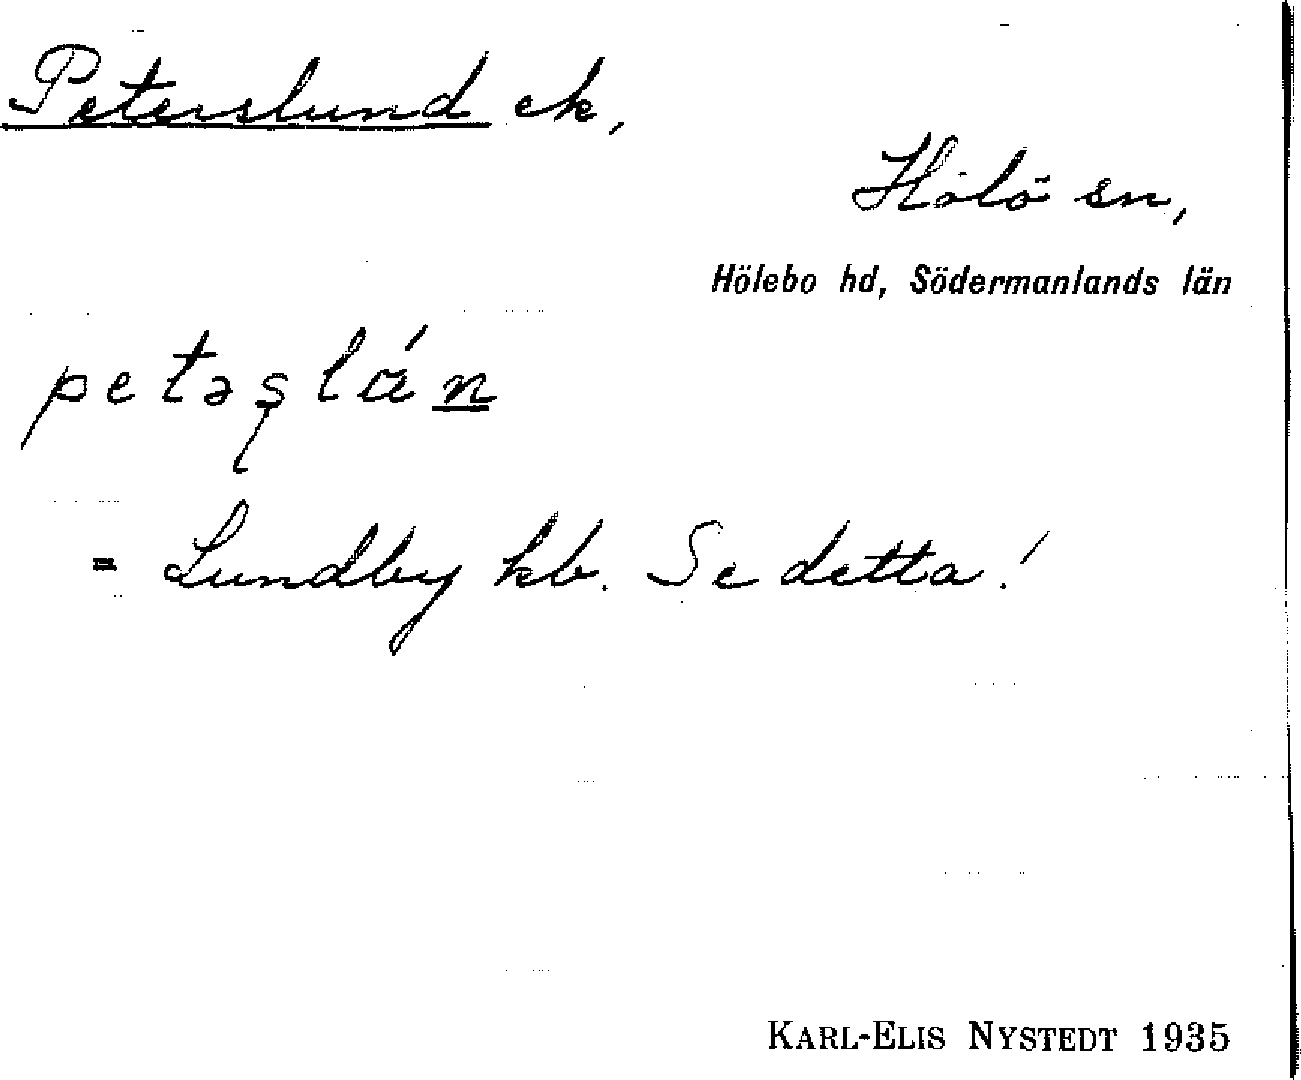 Peterslund ek,
Hölö sn,
Hölebo hd, Södermanlands län
= Lundby kb. Se detta!
KARL-ELIS NYSTEDT 1935